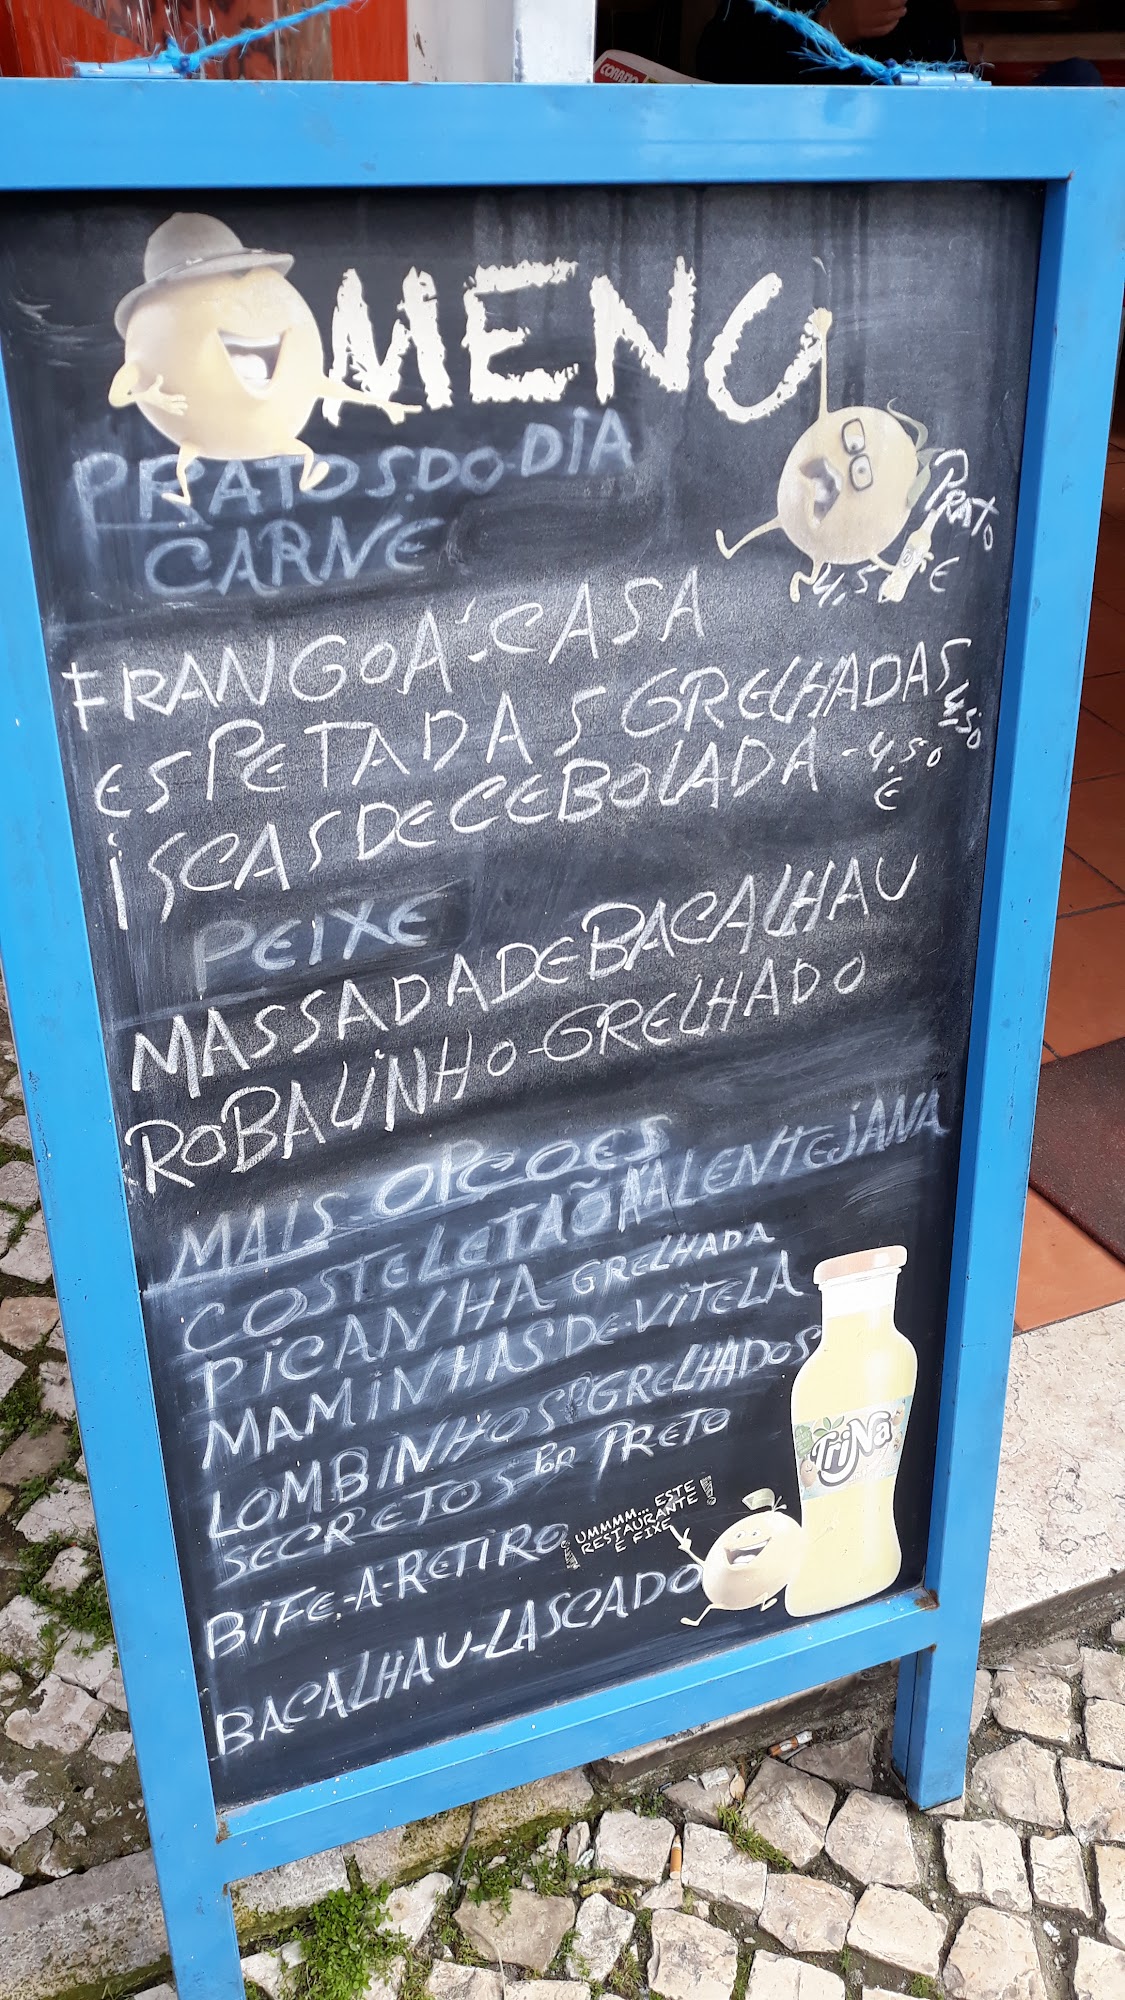 CORREIO
MENU
PRATOS.DO-DIA
CARNE
PRATO
4,5 €
FRANGO Á-CASA
ESPETADAS GRELHADAS 4,50
ISCAS DE CEBOLADA - 4,50
€
PEIXE
MASSADA DE BACALHAU
ROBALINHO-GRELHADO
MAIS OPCOES
COSTELETÃO Á ALENTEJANA
PICANHA GRELHADA
MAMINHAS DE-VITELA
LOMBINHOS GRELHADOS
SECRETOS POR PRETO
BIFE-A-RETIRO
BACALHAU-LASCADO
¡UMMMM... ESTE
RESTAURANTE
E FIXE!
TriNa